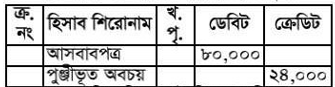 ক্র. নং হিসাব শিরোনাম খ. পৃ. ডেবিট ক্রেডিট
আসবাবপত্র ৮০,০০০
পুঞ্জীভূত অবচয় ২৪,০০০